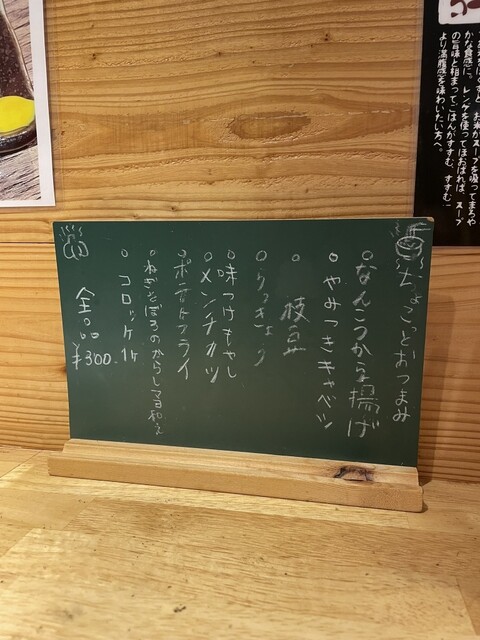 ちょこっとおつまみ
○なんこつから揚げ
○やみつきキャベツ
○枝豆
○らっきょう
○味つけもやし
○メンチカツ
○ポテトフライ
○ねぎそぼろのからしマヨ和え
○コロッケ1ケ
全品
¥300.
お米がスープを吸ってまろや
かな食感に。レンゲを使ってほおばれば、スープ
の旨味と相まってごはんがすすむ、すすむ…
より満腹感を味わいたい方へ。